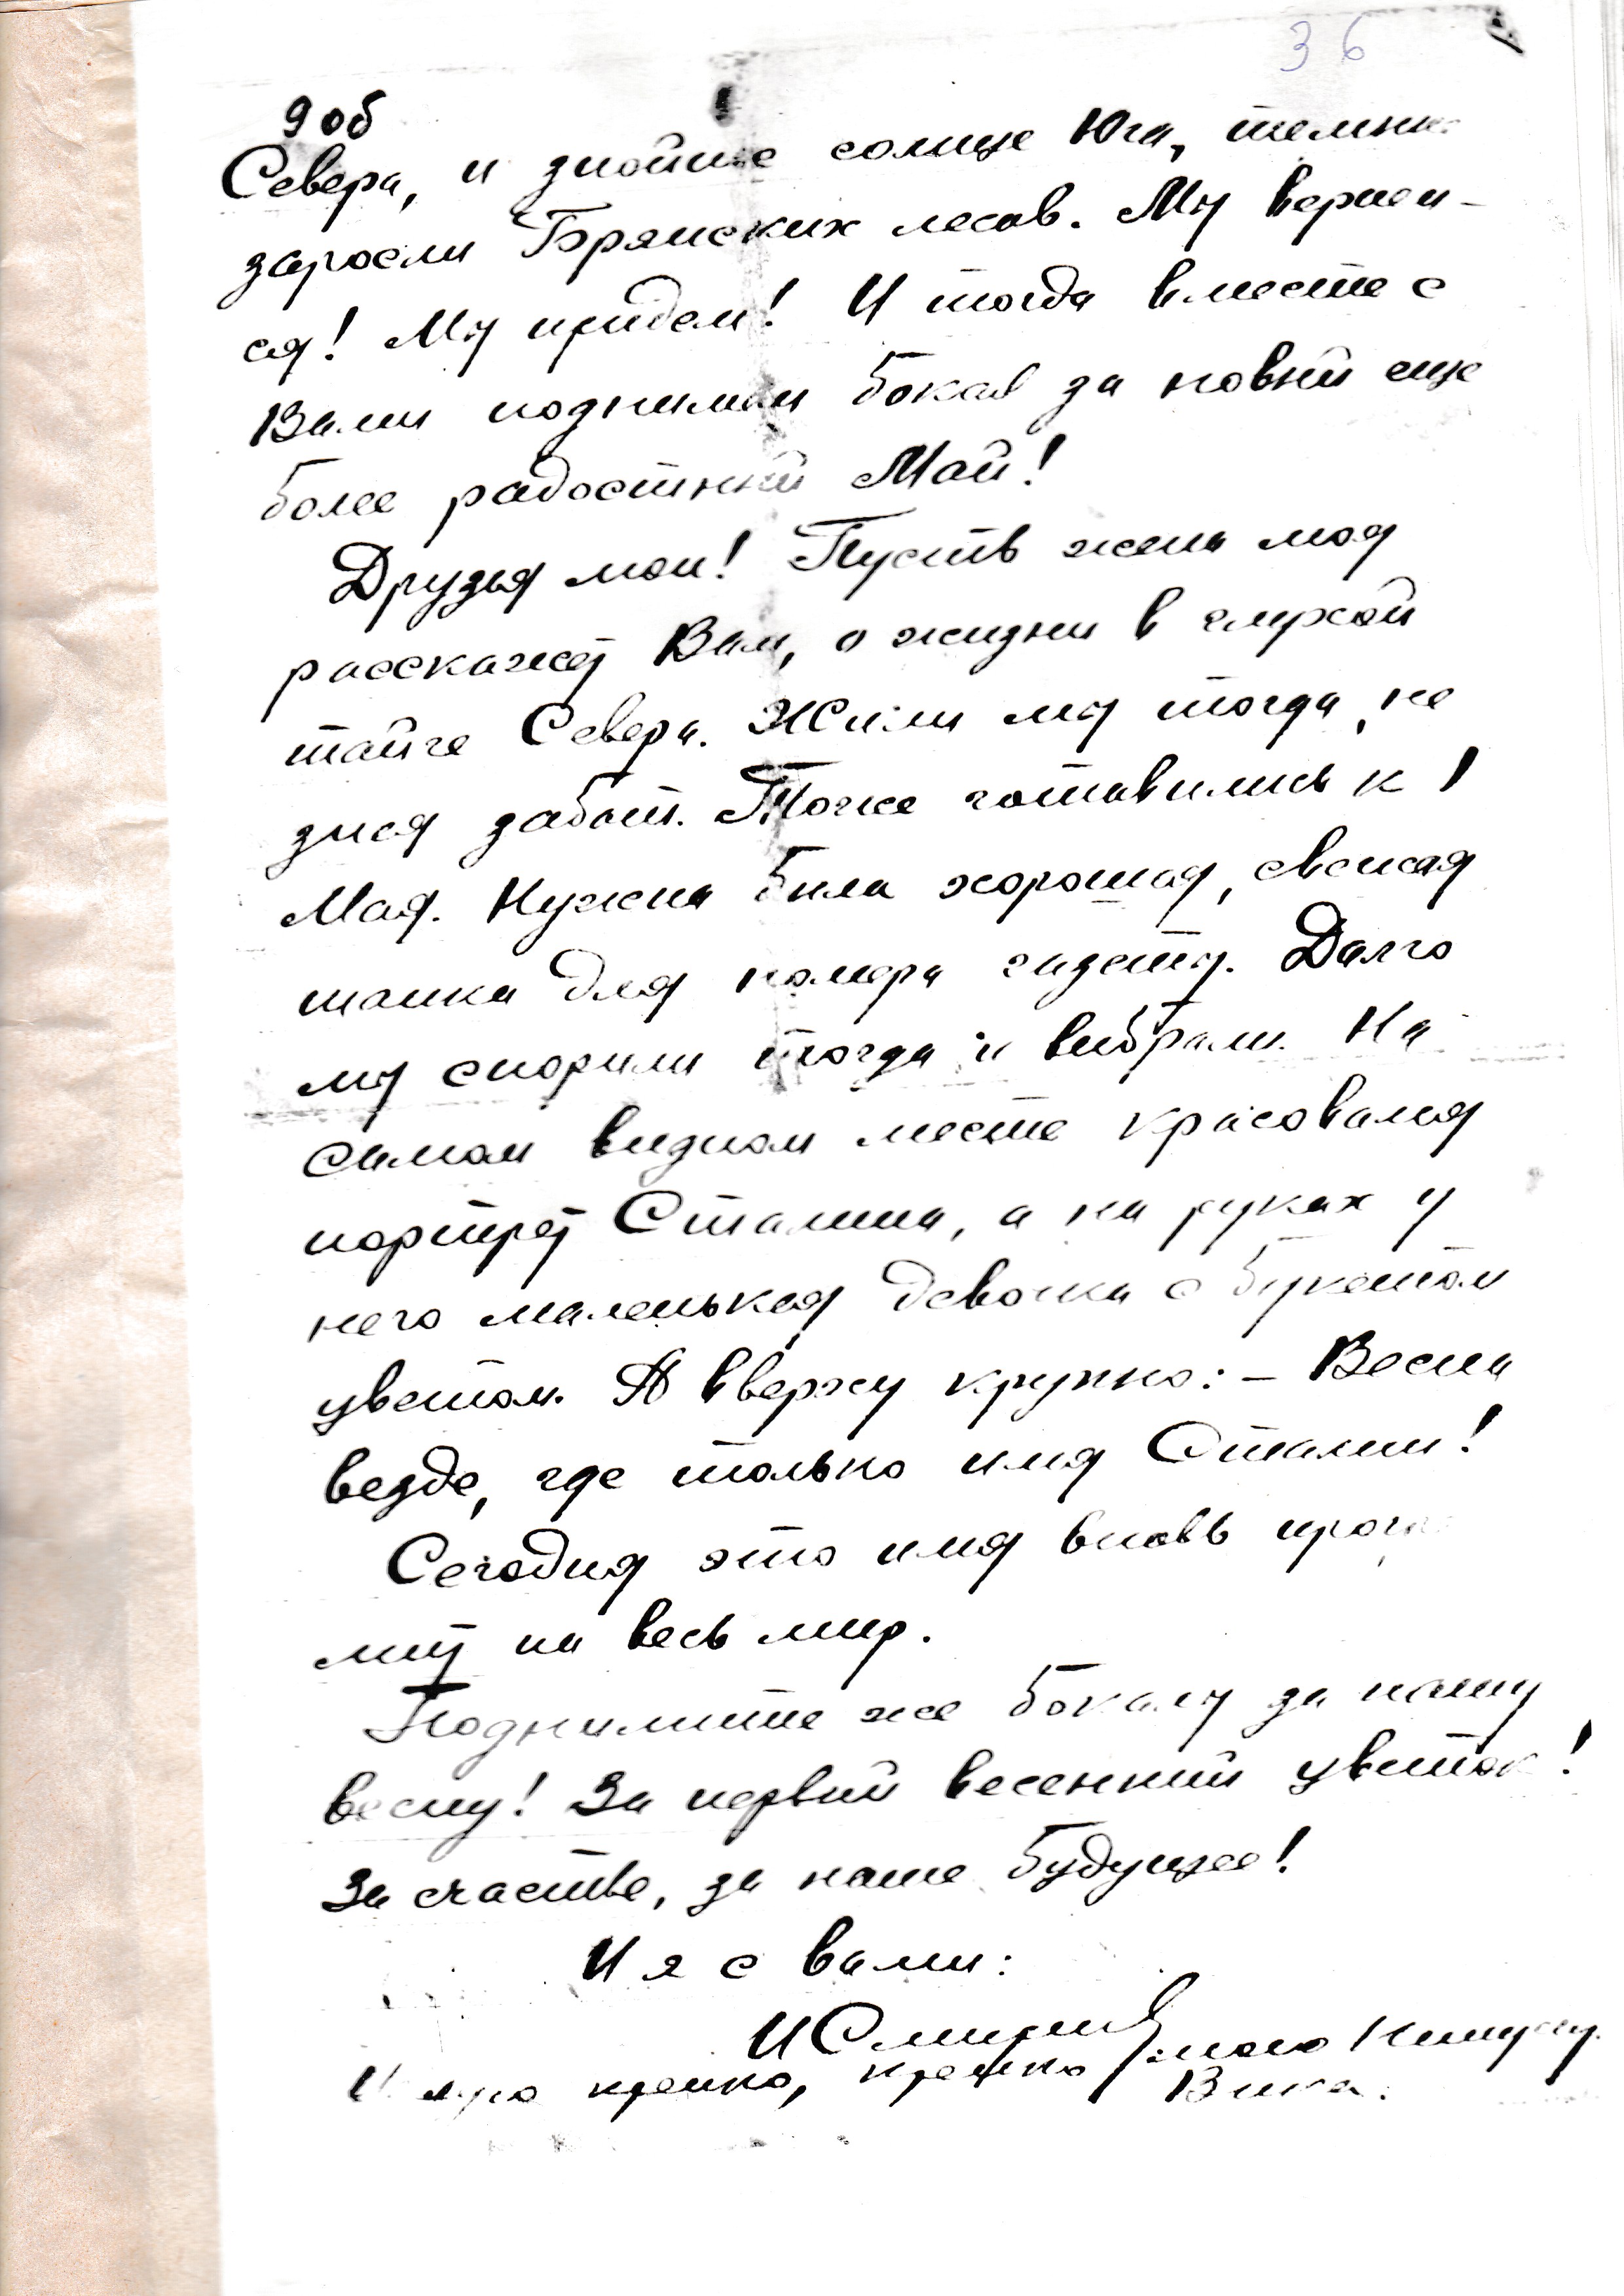 36
9 об
Севера, и знойное солнце Юга, темные
заросли Брянских лесов. Мы вернем-
ся! Мы придем! И тогда вместе с
Вами поднимем бокал за новый еще
более радостный Май!
Друзья мои! Пусть жена моя
расскажет Вам, о жизни в глухой
тайге Севера. Жили мы тогда, не
зная забот. Тоже готовились к 1
Мая. Нужна была хорошая, свежая
шапка для номера газеты. Долго
мы спорили тогда и выбрали. На
самом видном месте красовался
портрет Сталина, а на руках у
него маленькая девочка с букетом
цветом. А вверху крупно: – Весна
везде, где только имя Сталин!
Сегодня это имя вновь прогре
мит на весь мир.
Поднимите же бокалы за нашу
весну! За первый весенний цветок!
За счастье, за наше будущее!
И я с вами:
И Смирнов
крепко, крепко